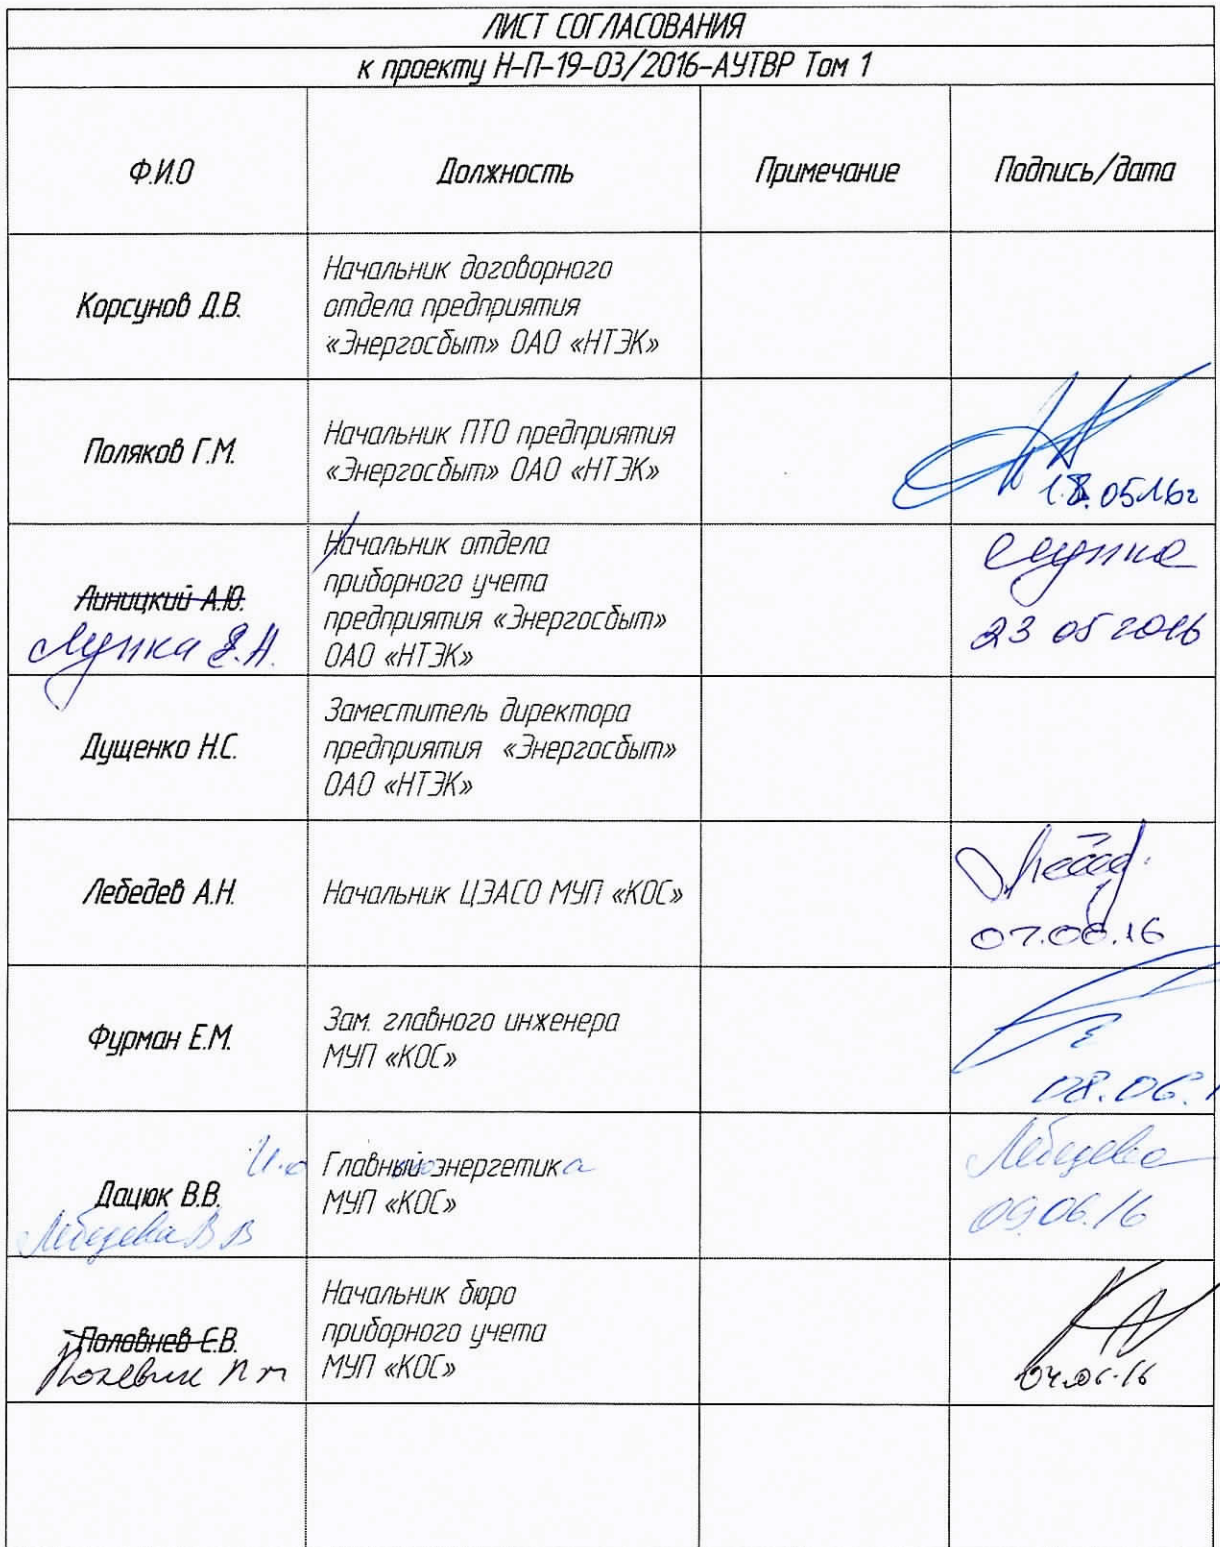 ЛИСТ СОГЛАСОВАНИЯ
к проекту Н-П-19-03/2016-АУТВР Том 1
Ф.И.О Должность Примечание Подпись/дата
Корсунов Д.В.
Начальник договорного
отдела предприятия
«Энергосбыт» ОАО «НТЭК»
Поляков Г.М.
Начальник ПТО предприятия
«Энергосбыт» ОАО «НТЭК»
18.05.16г
Линицкий А.Ю.
Лупка Е.А.
Начальник отдела
приборного учета
предприятия «Энергосбыт»
ОАО «НТЭК»
23 05 2016
Дущенко Н.С.
Заместитель директора
предприятия «Энергосбыт»
ОАО «НТЭК»
Лебедев А.Н.
Начальник ЦЭАСО МУП «КОС»
07.06.16
Фурман Е.М.
Зам. главного инженера
МУП «КОС»
08.06.1
Дацюк В.В.
Лебедева В В
И.о Главного энергетика
МУП «КОС»
Лебедева
09.06.16
Половнев Е.В.
Начальник бюро
приборного учета
МУП «КОС»
04.06.16